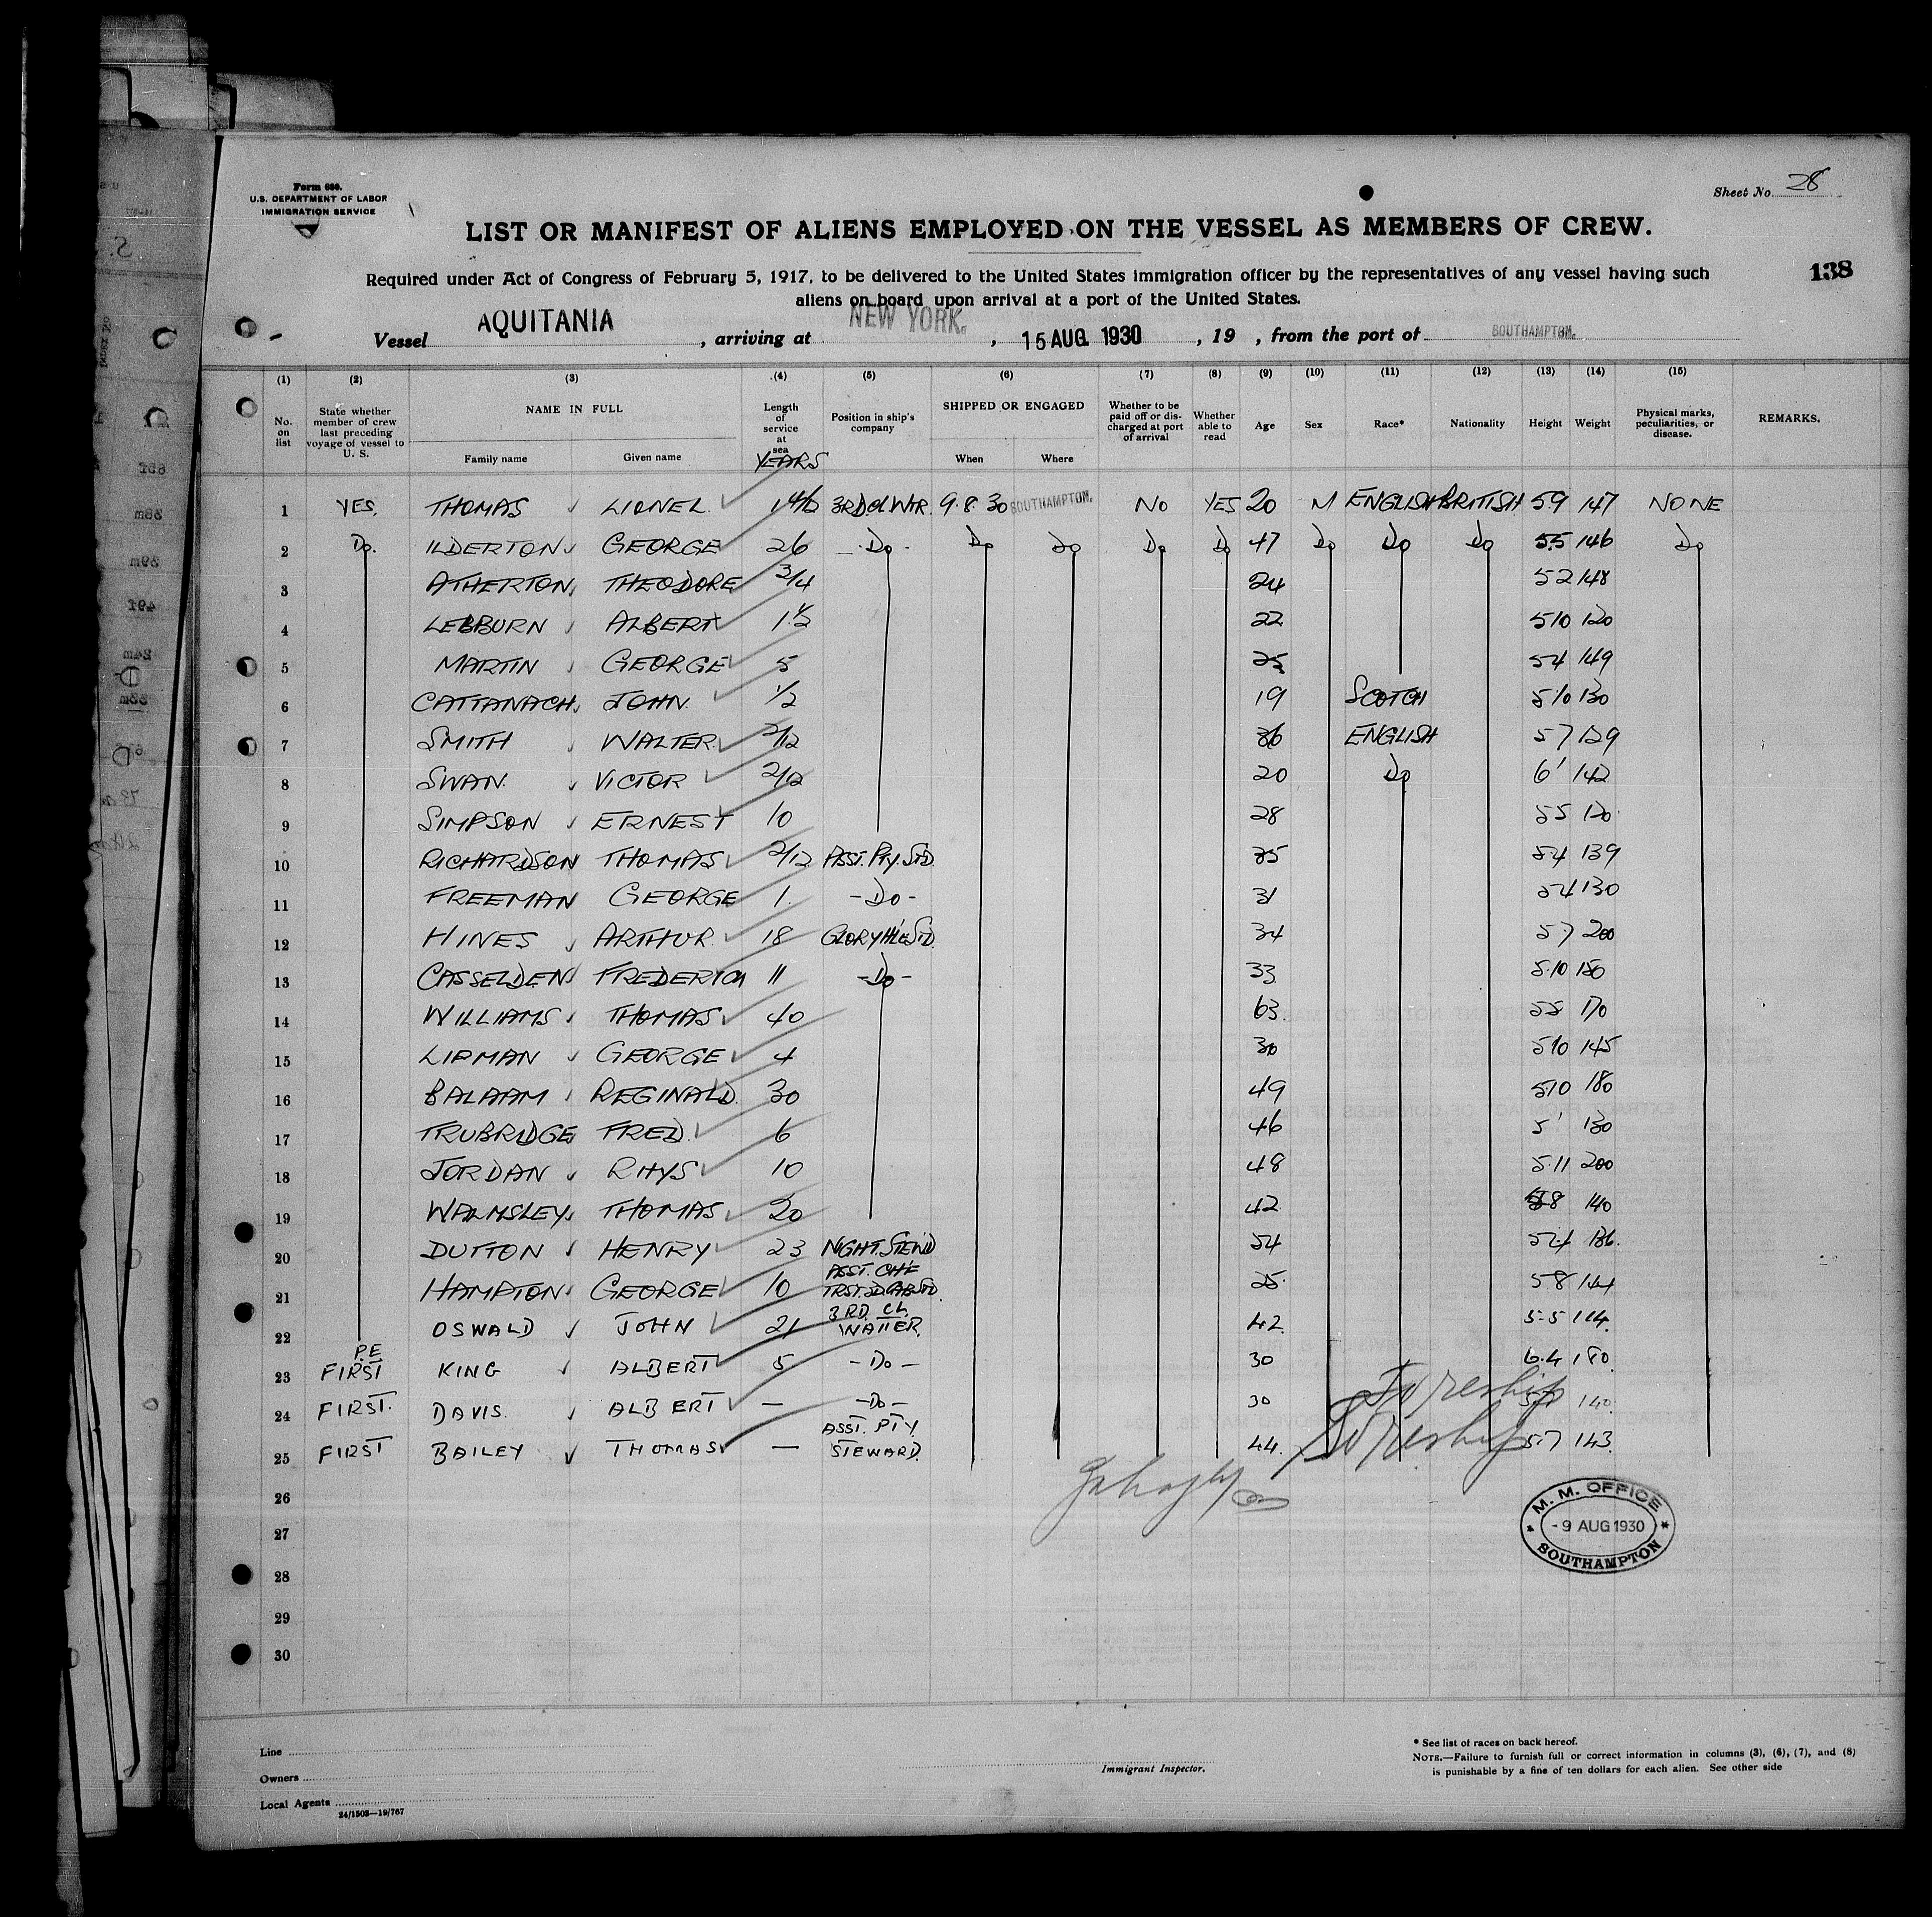 Form 680.
U.S. DEPARTMENT OF LABOR
IMMIGRATION SERVICE
Sheet No. 28
LIST OR MANIFEST OF ALIENS EMPLOYED ON THE VESSEL AS MEMBERS OF CREW.
138
Required under Act of Congress of February 5, 1917, to be delivered to the United States immigration officer by the representatives of any vessel having such
aliens on board upon arrival at a port of the United States.
Vessel AQUITANIA, arriving at NEW YORK., 15 AUG. 1930, 19 , from the port of SOUTHAMPTON.
(1) (2) (3) (4) (5) (6) (7) (8) (9) (10) (11) (12) (13) (14) (15)
No. on list State whether member of crew last preceding voyage of vessel to U. S. NAME IN FULL Family name Given name Length of service at sea YEARS Position in ship's company SHIPPED OR ENGAGED When Where Whether to be paid off or discharged at port of arrival Whether able to read Age Sex Race* Nationality Height Weight Physical marks, peculiarities, or disease. REMARKS.
1 YES. THOMAS LIONEL 3RD Cl WTR. 9.8.30 SOUTHAMPTON. NO YES 20 M ENGLISH BRITISH 59 147 NONE
2 Do. ILDERTON GEORGE 26 Do. Do Do Do Do 47 Do Do Do 5.5 146 Do
3 ATHERTON THEODORE 3/4 24 52 148
4 LEBBURN ALBERT 1½ 22 510 120
5 MARTIN GEORGE 5 25 54 149
6 CATTANACH JOHN 1/2 19 SCOTCH 510 130
7 SMITH WALTER 2/12 36 ENGLISH 57 129
8 SWAN VICTOR 2/12 20 Do 6' 142
9 SIMPSON ERNEST 10 28 55 120
10 RICHARDSON THOMAS 2/12 ASST. PTY. STD. 35 54 139
11 FREEMAN GEORGE 1. -Do- 31 54 130
12 HINES ARTHUR 18 GLORYHLE STD. 34 57 200
13 CASSELDEN FREDERICK 11 -Do- 33 5.10 150
14 WILLIAMS THOMAS 40 63. 55 170
15 LIPMAN GEORGE 4 30 510 145
16 BALAAM REGINALD. 30 49 510 180
17 TRUBRIDGE FRED. 6 46 5' 130
18 JORDAN RHYS 10 48 5.11 200
19 WALMSLEY THOMAS 20 42 58 140
20 DUTTON HENRY 23 NIGHT. STEWD 54 136.
21 HAMPTON GEORGE 10 ASST. CH'F TRST. 3D CAB STD. 25 58 144
22 OSWALD JOHN 21 3RD. CL. WAITER. 42 5-5 114.
23 P.E FIRST KING ALBERT 5 -Do- 30 6.4 180
24 FIRST. DAVIS. ALBERT — -Do- 30 140
25 FIRST BAILEY THOMAS — ASST. PTY. STEWARD. 44. 5.7 143
26
27
28
29
30
M. M. OFFICE
- 9 AUG 1930
SOUTHAMPTON
Line
Owners
Local Agents
24/1503—19/767
Immigrant Inspector.
* See list of races on back hereof.
NOTE.—Failure to furnish full or correct information in columns (3), (6), (7), and (8)
is punishable by a fine of ten dollars for each alien. See other side